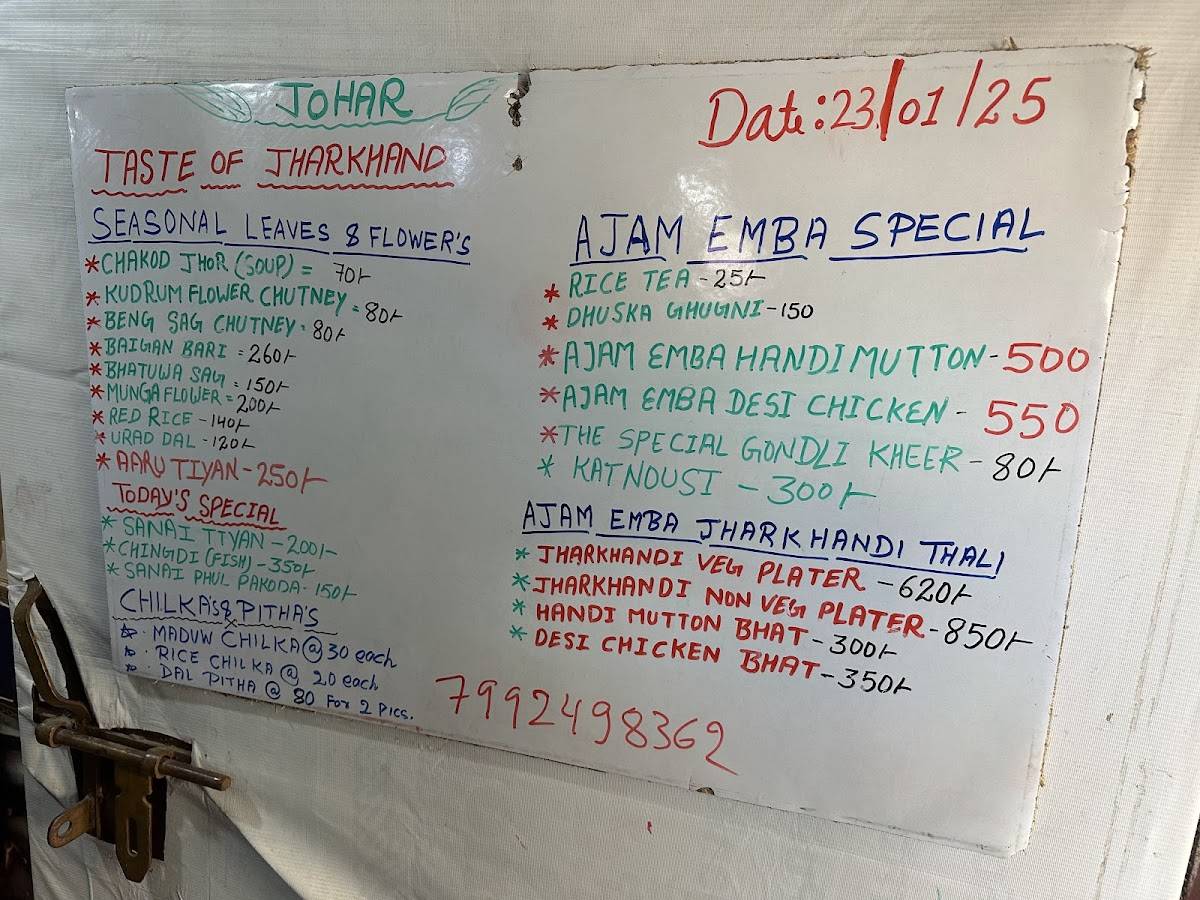 JOHAR
TASTE OF JHARKHAND
SEASONAL LEAVES & FLOWER'S
* CHAKOD JHOR (SOUP) = 70/-
* KUDRUM FLOWER CHUTNEY = 80/-
* BENG SAG CHUTNEY = 80/-
* BAIGAN BARI = 260/-
* BHATUWA SAG = 150/-
* MUNGA FLOWER = 200/-
* RED RICE - 140/-
* URAD DAL - 120/-
* AARU TIYAN - 250/-
TODAY'S SPECIAL
* SANAI TIYAN - 200/-
* CHINGDI (FISH) - 350/-
* SANAI PHUL PAKODA - 150/-
CHILKA'S & PITHA'S
MADUW CHILKA @ 30 each
RICE CHILKA @ 20 each
DAL PITHA @ 80 For 2 Pics.
Date: 23/01/25
AJAM EMBA SPECIAL
* RICE TEA - 25/-
* DHUSKA GHUGNI - 150
* AJAM EMBA HANDI MUTTON - 500
* AJAM EMBA DESI CHICKEN - 550
* THE SPECIAL GONDLI KHEER - 80/-
* KATNOUSI - 300/-
AJAM EMBA JHARKHANDI THALI
* JHARKHANDI VEG PLATER - 620/-
* JHARKHANDI NON VEG PLATER - 850/-
* HANDI MUTTON BHAT - 300/-
* DESI CHICKEN BHAT - 350/-
7992498362